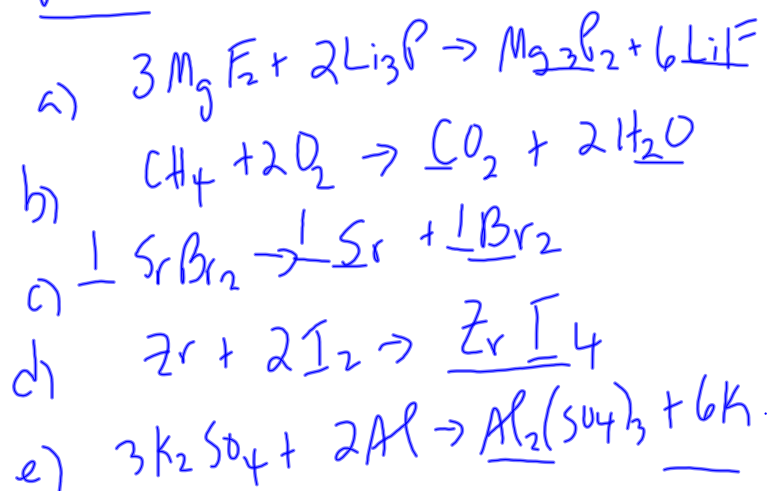 a) 3MgF₂ + 2Li₃P → Mg₃P₂ + 6LiF
b) CH₄ + 2O₂ → CO₂ + 2H₂O
c) 1 SrBr₂ → 1 Sr + 1Br₂
d) Zr + 2I₂ → ZrI₄
e) 3K₂SO₄ + 2Al → Al₂(SO₄)₃ + 6K.